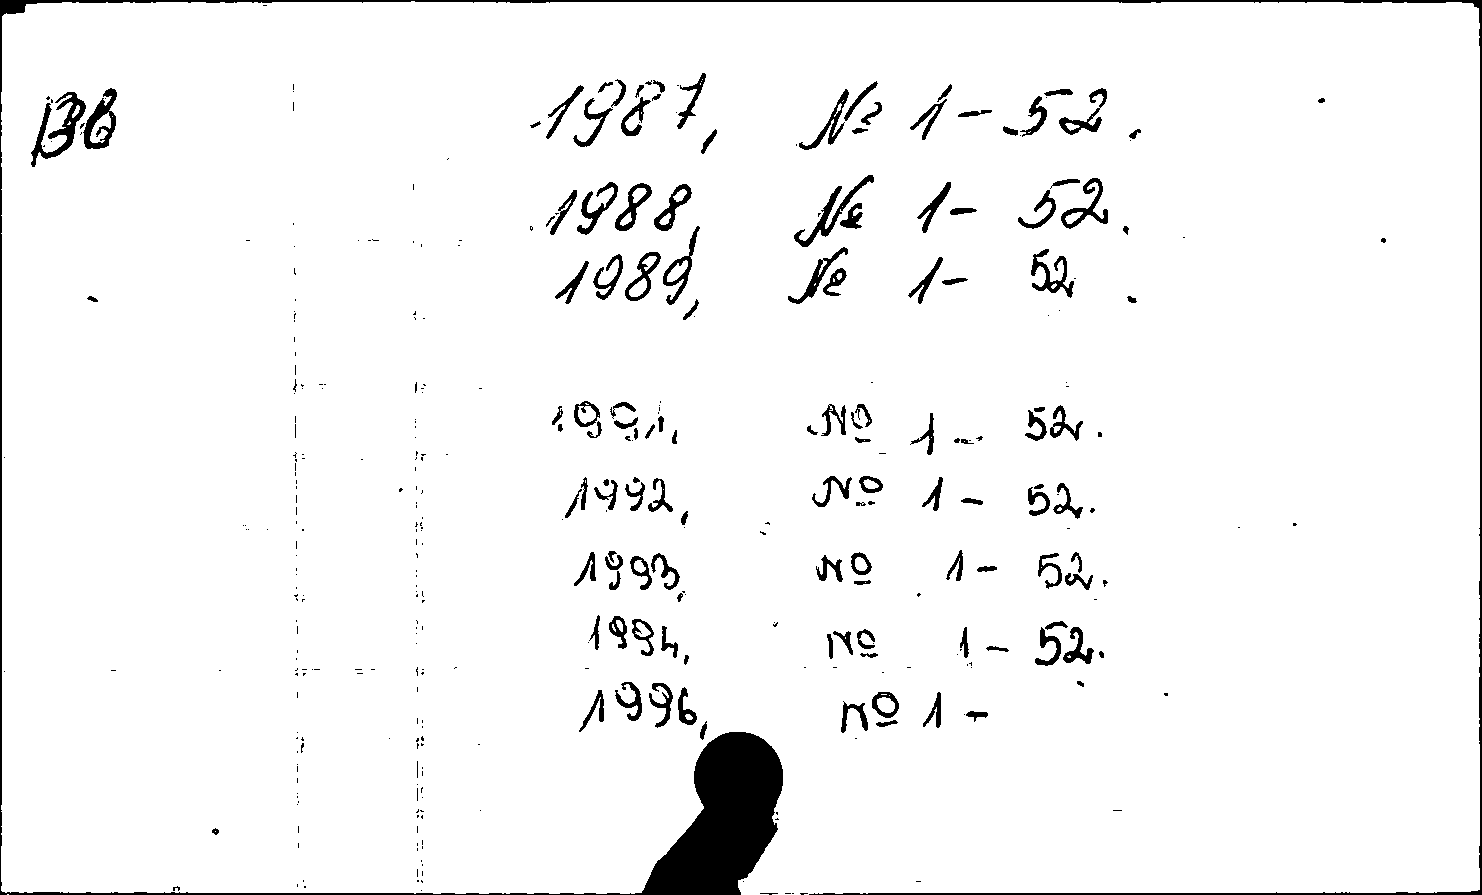 Вб 1987, № 1-52.
1988, № 1-52.
1989, № 1-52.
1991, № 1-52.
1992, № 1-52.
1993, № 1-52.
1994, № 1-52.
1996, № 1-